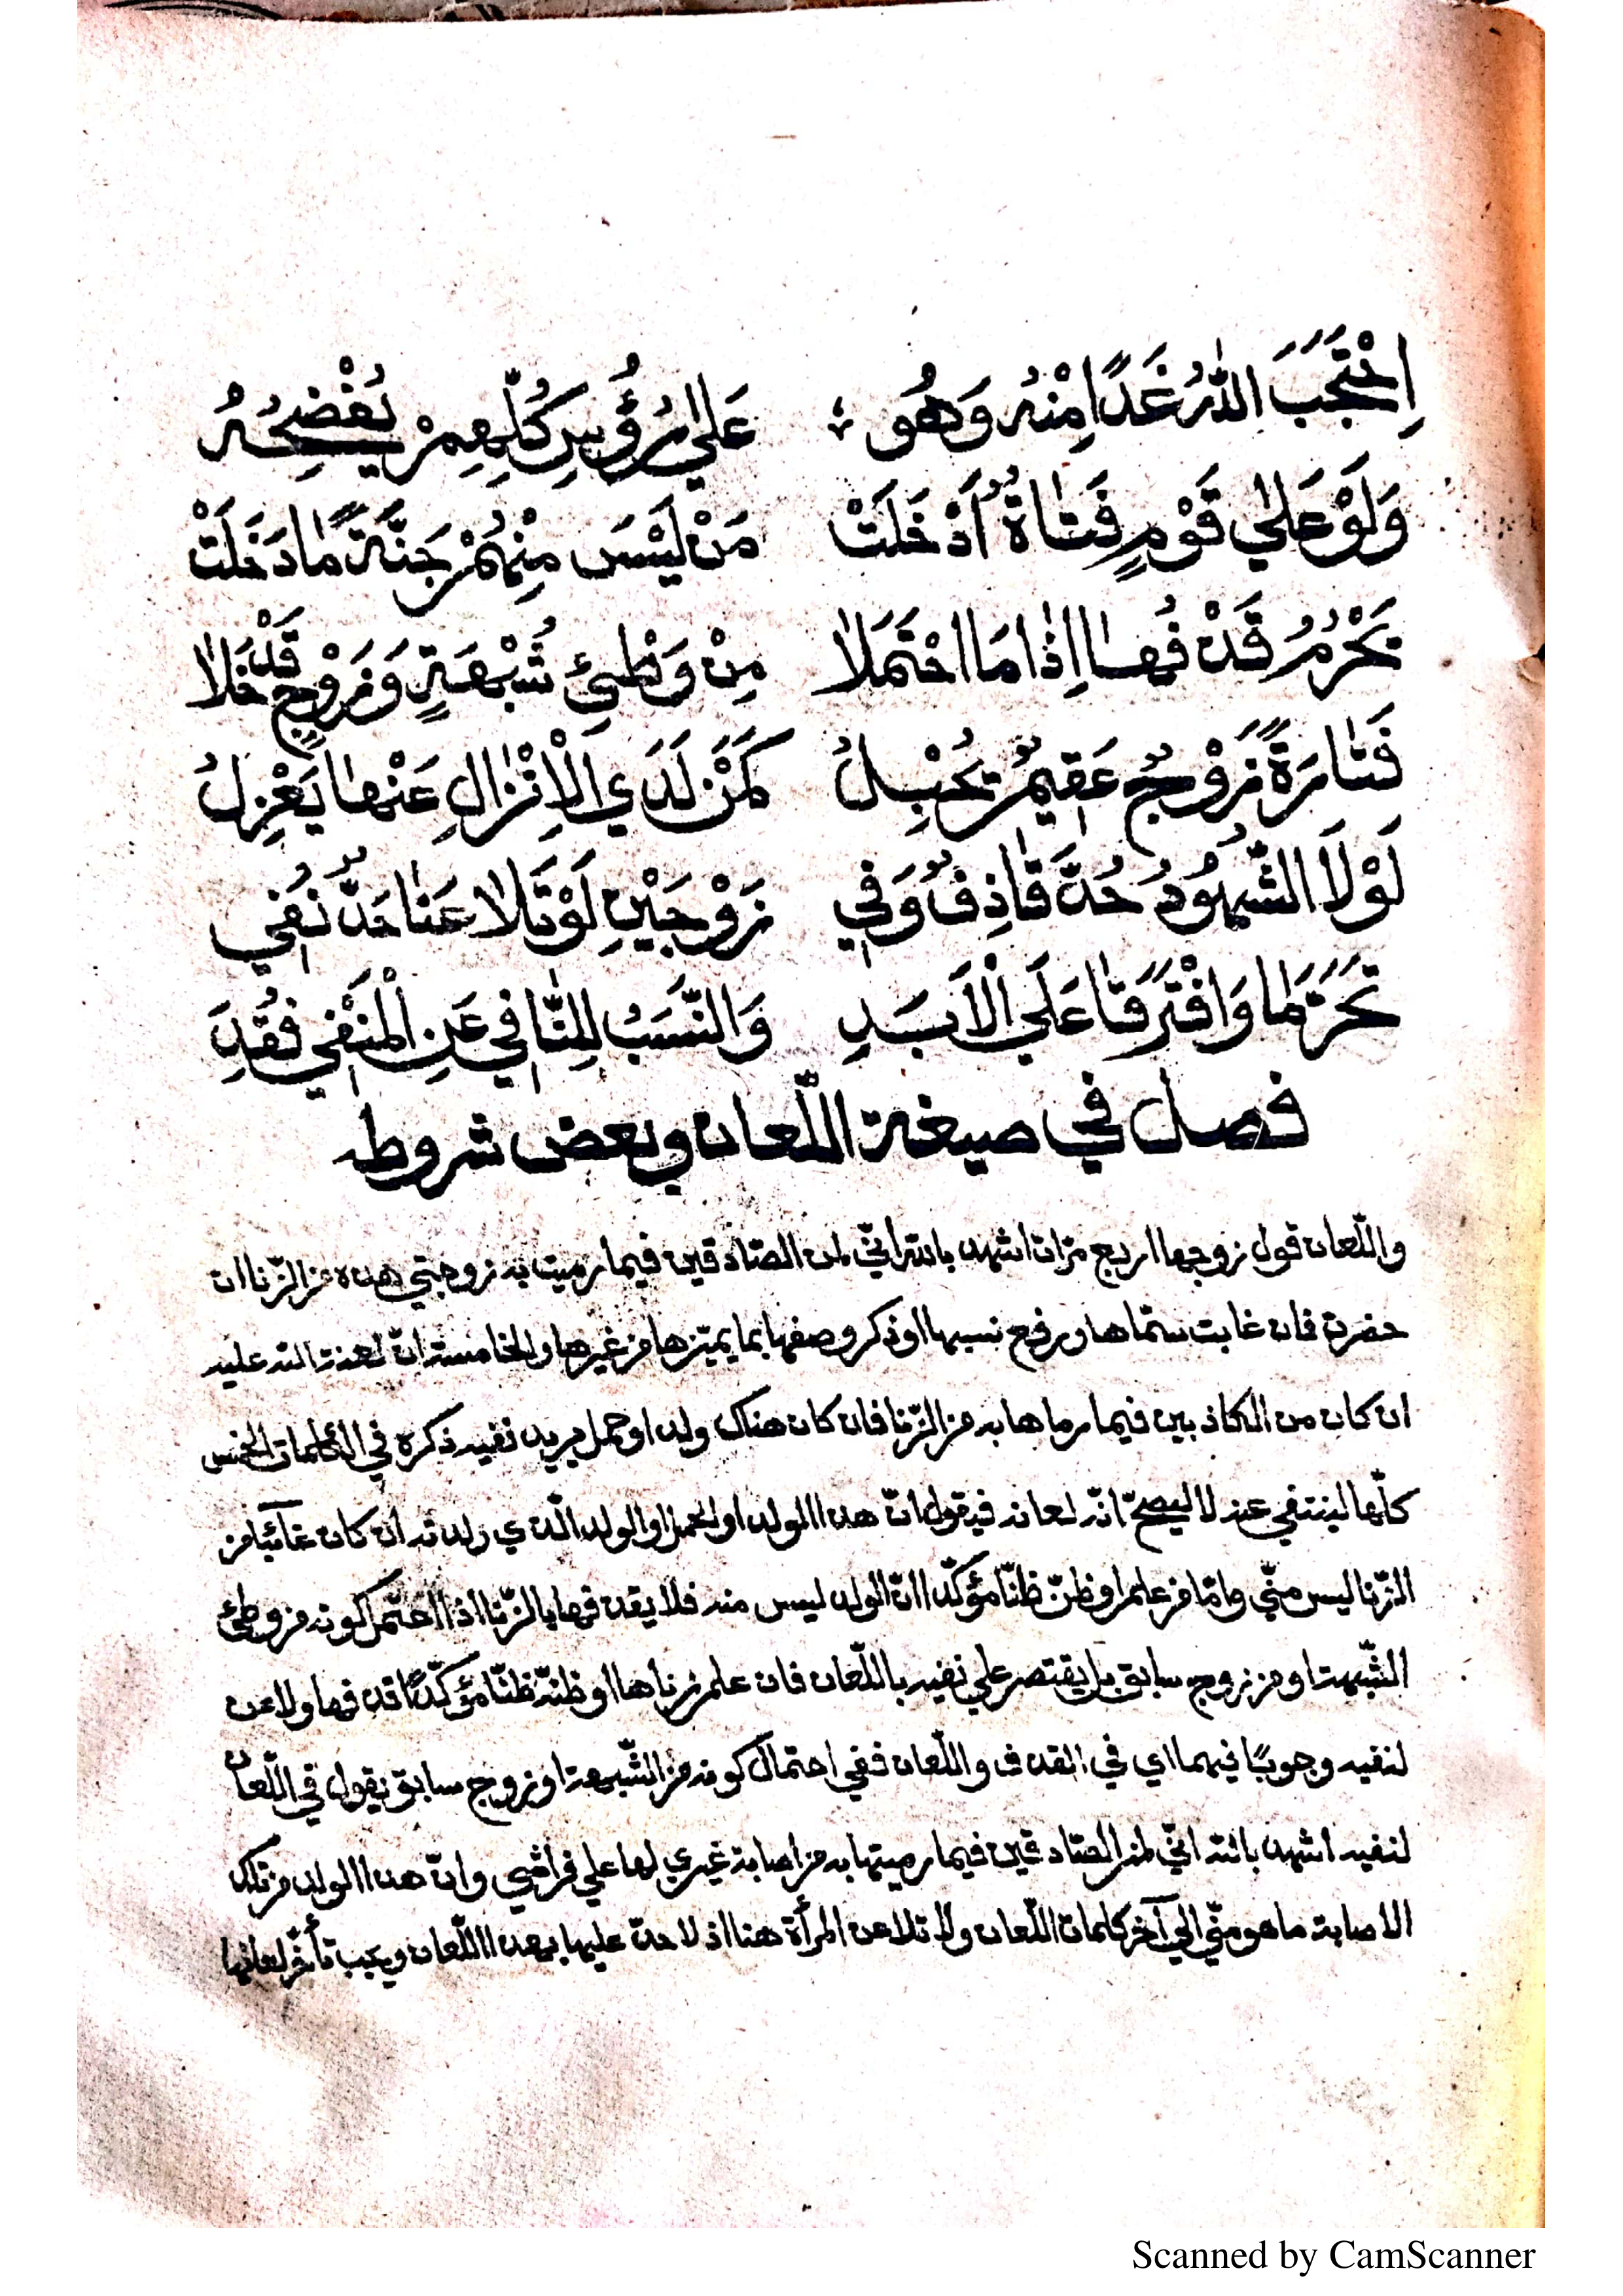 اِحْتَجَبَ اللّٰهُ غَدًا مِنْهُ وَهُو ؛ عَلٰى رُؤُسِ كُلِّهِمْ يُفْضِحُهُ
وَلَوْ عَلٰي قَوْمٍ فَتٰاةٌ اُدْخَلَتْ مَنْ لَيْسَ مِنْهُمْ جَنَّةً مٰا دَخَلَتْ
يَحْرُمُ قَذْفُهٰا اِذٰا مَا احْتَمَلاٰ مِنْ وَطْئِ شُبْهَةٍ وَزَوْجٍ قَدْ خَلاٰ
فَتٰارَةً زَوْجٌ عَقِيْمٌ يُحْبِلُ كَمَنْ لَدَي الْاِنْزٰالِ عَنْهٰا يَعْزِلُ
لَوْلاَ الشُّهُوْدُ حُدَّ قٰاذِفٌ وَفِي زَوْجَيْنِ لَوْ تَلاٰعَنٰا حَدٌّ نُفِي
تَحَرَّمٰا وَافْتَرَقٰا عَلَي الْاَبَدِ وَالنَّسَبُ لِلنّٰافِي عَنِ الْمَنْفِي فُقِدَ
فصل في صيغة اللّعان وبعض شروطه
واللّعان قول زوجها اربع مرّات اشهد بالله انّي لمن الصّادقين فيما رميت به زوجتي هذه من الزّنا ان
حضرت فان غابت سمّاها ورفع نسبها او ذكر وصفها بما يميّزها من غيرها والخامسة انّ لعنة الله عليه
ان كان من الكاذبين فيما رماها به من الزّنا فان كان هناك ولد او حمل يريد نفيه ذكره في الكلمات الخمس
كلّها لينتفي عنه لا ليصحّ لعانه فيقول انّ هذا الولد او الحمل او الولد الّذي ولدته ان كان غائبا من
الزّنا ليس منّي وامّا من علم او ظنّ ظنّا مؤكّدا انّ الولد ليس منه فلا يقذفها بالزّنا اذا احتمل كونه من وطئ
الشّبهة او من زوج سابق بل يقتصر علي نفيه باللّعان فان علم زناها او ظنّه ظنّا مؤكّدًا قذفها ولاعن
لنفيه وجوبًا فيهما اي في القذف واللّعان ففي احتمال كونه من الشّبهة او زوج سابق يقول في اللّعان
لنفيه اشهد بالله انّي لمن الصّادقين فيما رميتها به من اصابة غيري لها علي فراشي وانّ هذا الولد من تلك
الاصابة ما هو منّي الي آخر كلمات اللّعان ولا تلاعن المرأة هنا اذ لا حدّ عليها بهذا اللّعان ويجب تأخّر لعانها
Scanned by CamScanner